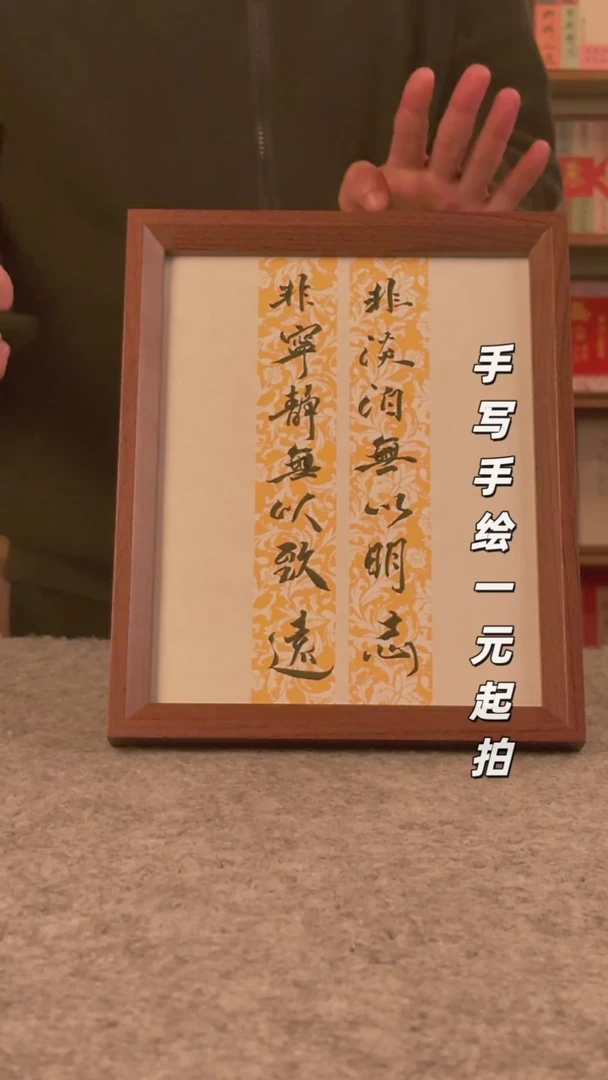 非淡泊無以明志
非寧靜無以致遠
手写手绘一元起拍